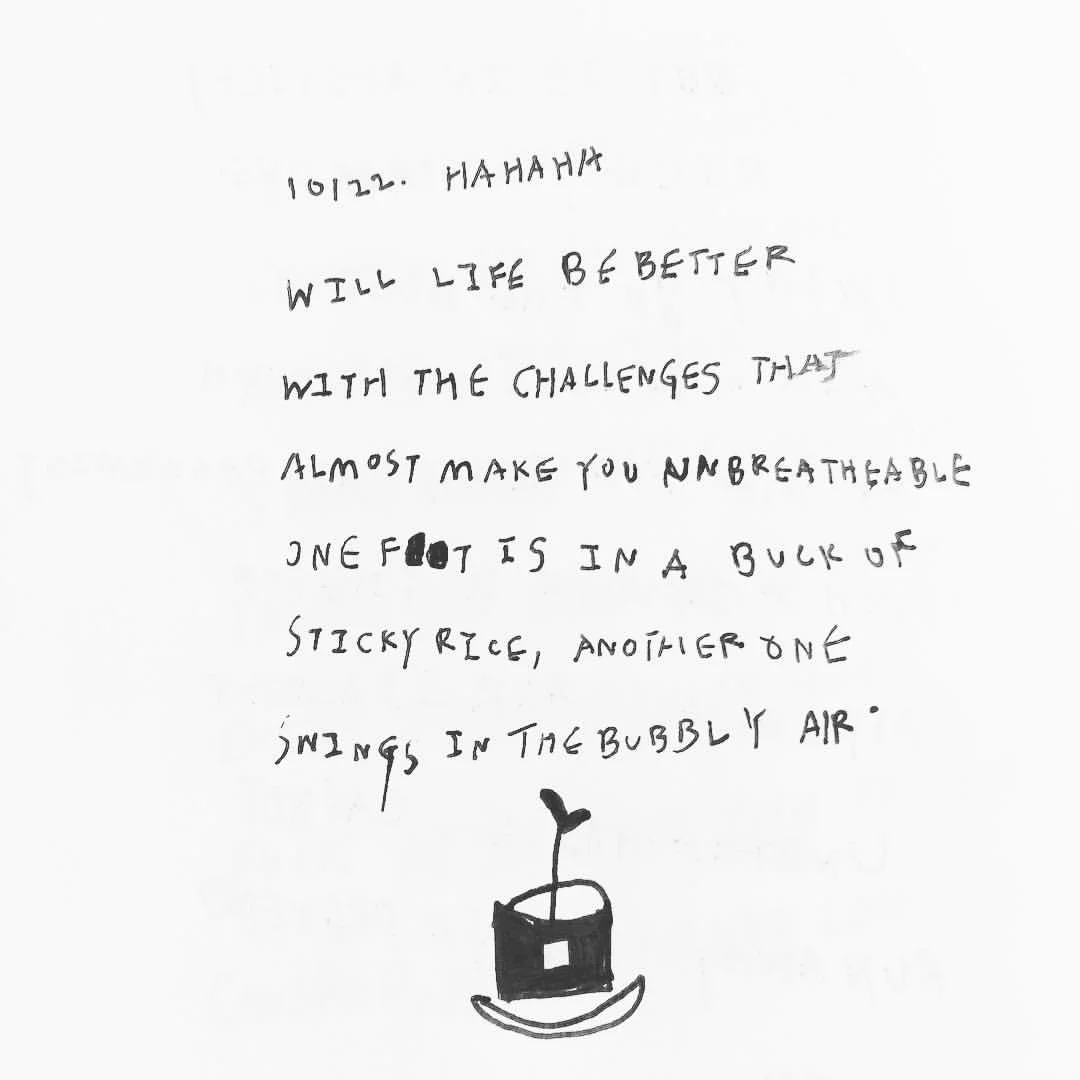 10122. HAHAHA
WILL LIFE BE BETTER
WITH THE CHALLENGES THAT
ALMOST MAKE YOU NNBREATHEABLE
ONE FOOT IS IN A BUCK OF
STICKY RICE, ANOTHER ONE
SWINGS IN THE BUBBLY AIR.